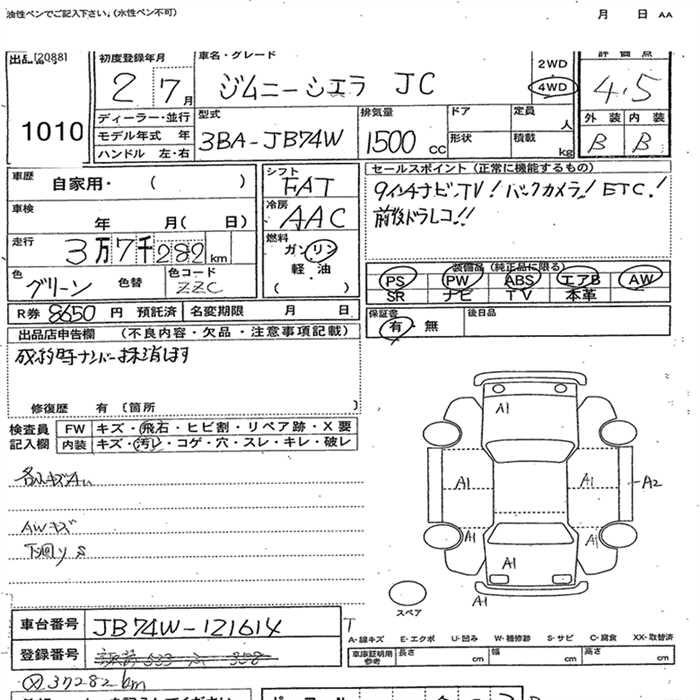 油性ペンでご記入下さい。(水性ペン不可)
月 日 AA
出品 [2088]
1010
初度登録年月
2 7月
車名・グレード
ジムニーシエラ JC
2WD
4WD
評価点
4.5
外装 内装
B B
ディーラー・並行
モデル年式 年
ハンドル 左・右
型式
3BA-JB74W
排気量
1500 cc
ドア
形状
定員 人
積載 kg
車歴
自家用・( )
車検
年 月( 日)
走行
3万7千282 km
色
グリーン
色替
色コード
ZZC
シフト
FAT
冷房
AAC
燃料
ガソリン
軽・油
( )
セールスポイント (正常に機能するもの)
9インチナビ、TV! バックカメラ! ETC!
前後ドラレコ!!
装備品 (純正品に限る)
PS PW ABS エアB AW
SR ナビ TV 本革
R券 8650 円 預託済 名変期限 月 日
保証書
有・無
後日品
出品店申告欄 (不良内容・欠品・注意事項記載)
ナンバー抹消します
修復歴 有〔箇所 〕
検査員
記入欄
FW キズ・飛石・ヒビ割・リペア跡・X要
内装 キズ・汚レ・コゲ・穴・スレ・キレ・破レ
各小キズA1
AWキズ
下廻りS
A1
A1
A1
A2
A1
A1
A1
A1
スペア
車台番号 JB74W-121614
登録番号
T
A-線キズ E-エクボ U-凹み W-補修跡 S-サビ C-腐食 XX-取替済
車庫証明用
参考
長さ cm
幅 cm
高さ cm
37282km